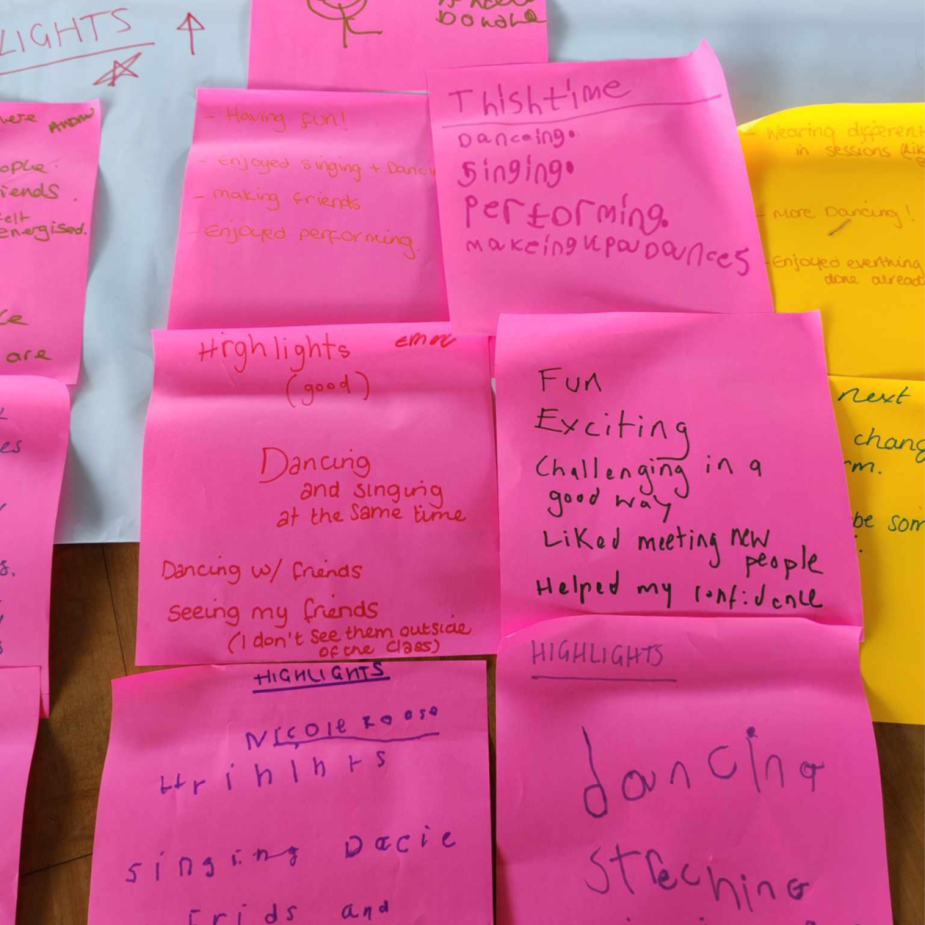 LIGHTS
DONALD
ere
ople.
iends.
felt
energised.
are
- Having fun!
- Enjoyed singing + Danci
- making friends
- Enjoyed performing.
Thishtime
Danceing.
singing.
PerForming.
makeing up our Dances
- Wearing different
in sessions (lik
- More Dancing!
- Enjoyed everthing
done alread
Highlights
(good)
Dancing
and singing
at the same time
Dancing w/ friends
seeing my friends
(I don't see them outside
of the class)
Fun
Exciting
Challenging in a
good way
Liked meeting new
people
Helped my confidence
next
chang
rm.
be som
HIGHLIGHTS
Nicole
Hrihlhrs
singing Dacie
Frids and
HIGHLIGHTS
dancing
streching